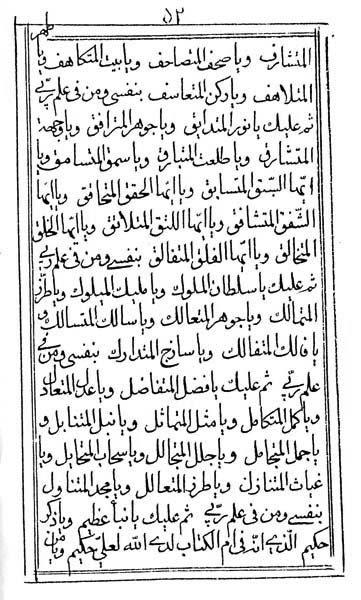 ٥٢
المتشارف ويا صحف المتصاحف ويا بيت المتكاهف ويا
المتلاهف ويا ركن المتعاسف بنفسي ومن في علم ربي
ثم عليك يا نور المتدايق ويا جوهر المترافق ويا وجهة
المتشارق ويا طلعت المتبارق ويا سمق المتسامق ويا
ايها السبق المتسابق ويا ايها الحقق المتحاقق ويا ايها
الشفق المتشافق ويا ايها اللتق المتلاتق ويا ايها الخلق
المتخالق ويا ايها الفلق المتفالق بنفسي ومن في علم ربي
ثم عليك يا سلطان الملوك ويا مليك المملوك ويا طرز
المتمالك ويا جوهر المتعالك ويا سالك المتسالك و
يا فلك المتفالك ويا ساذج المتدارك بنفسي ومن في
علم ربي ثم عليك يا فضل المتفاضل ويا عدل المتعادل
ويا كمل المتكامل ويا مثل المتماثل ويا نبل المتنابل و
يا جمل المتجامل ويا جلل المتجالل ويا سحاب المتحابل ويا
غياث المتنازل ويا طرز المتعالل ويا مجد المتناول
بنفسي ومن في علم ربي ثم عليك يا نبأ عظيم ويا ذكر
حكيم الذي انه في ام الكتاب لدى الله لعلي حكيم ويا من